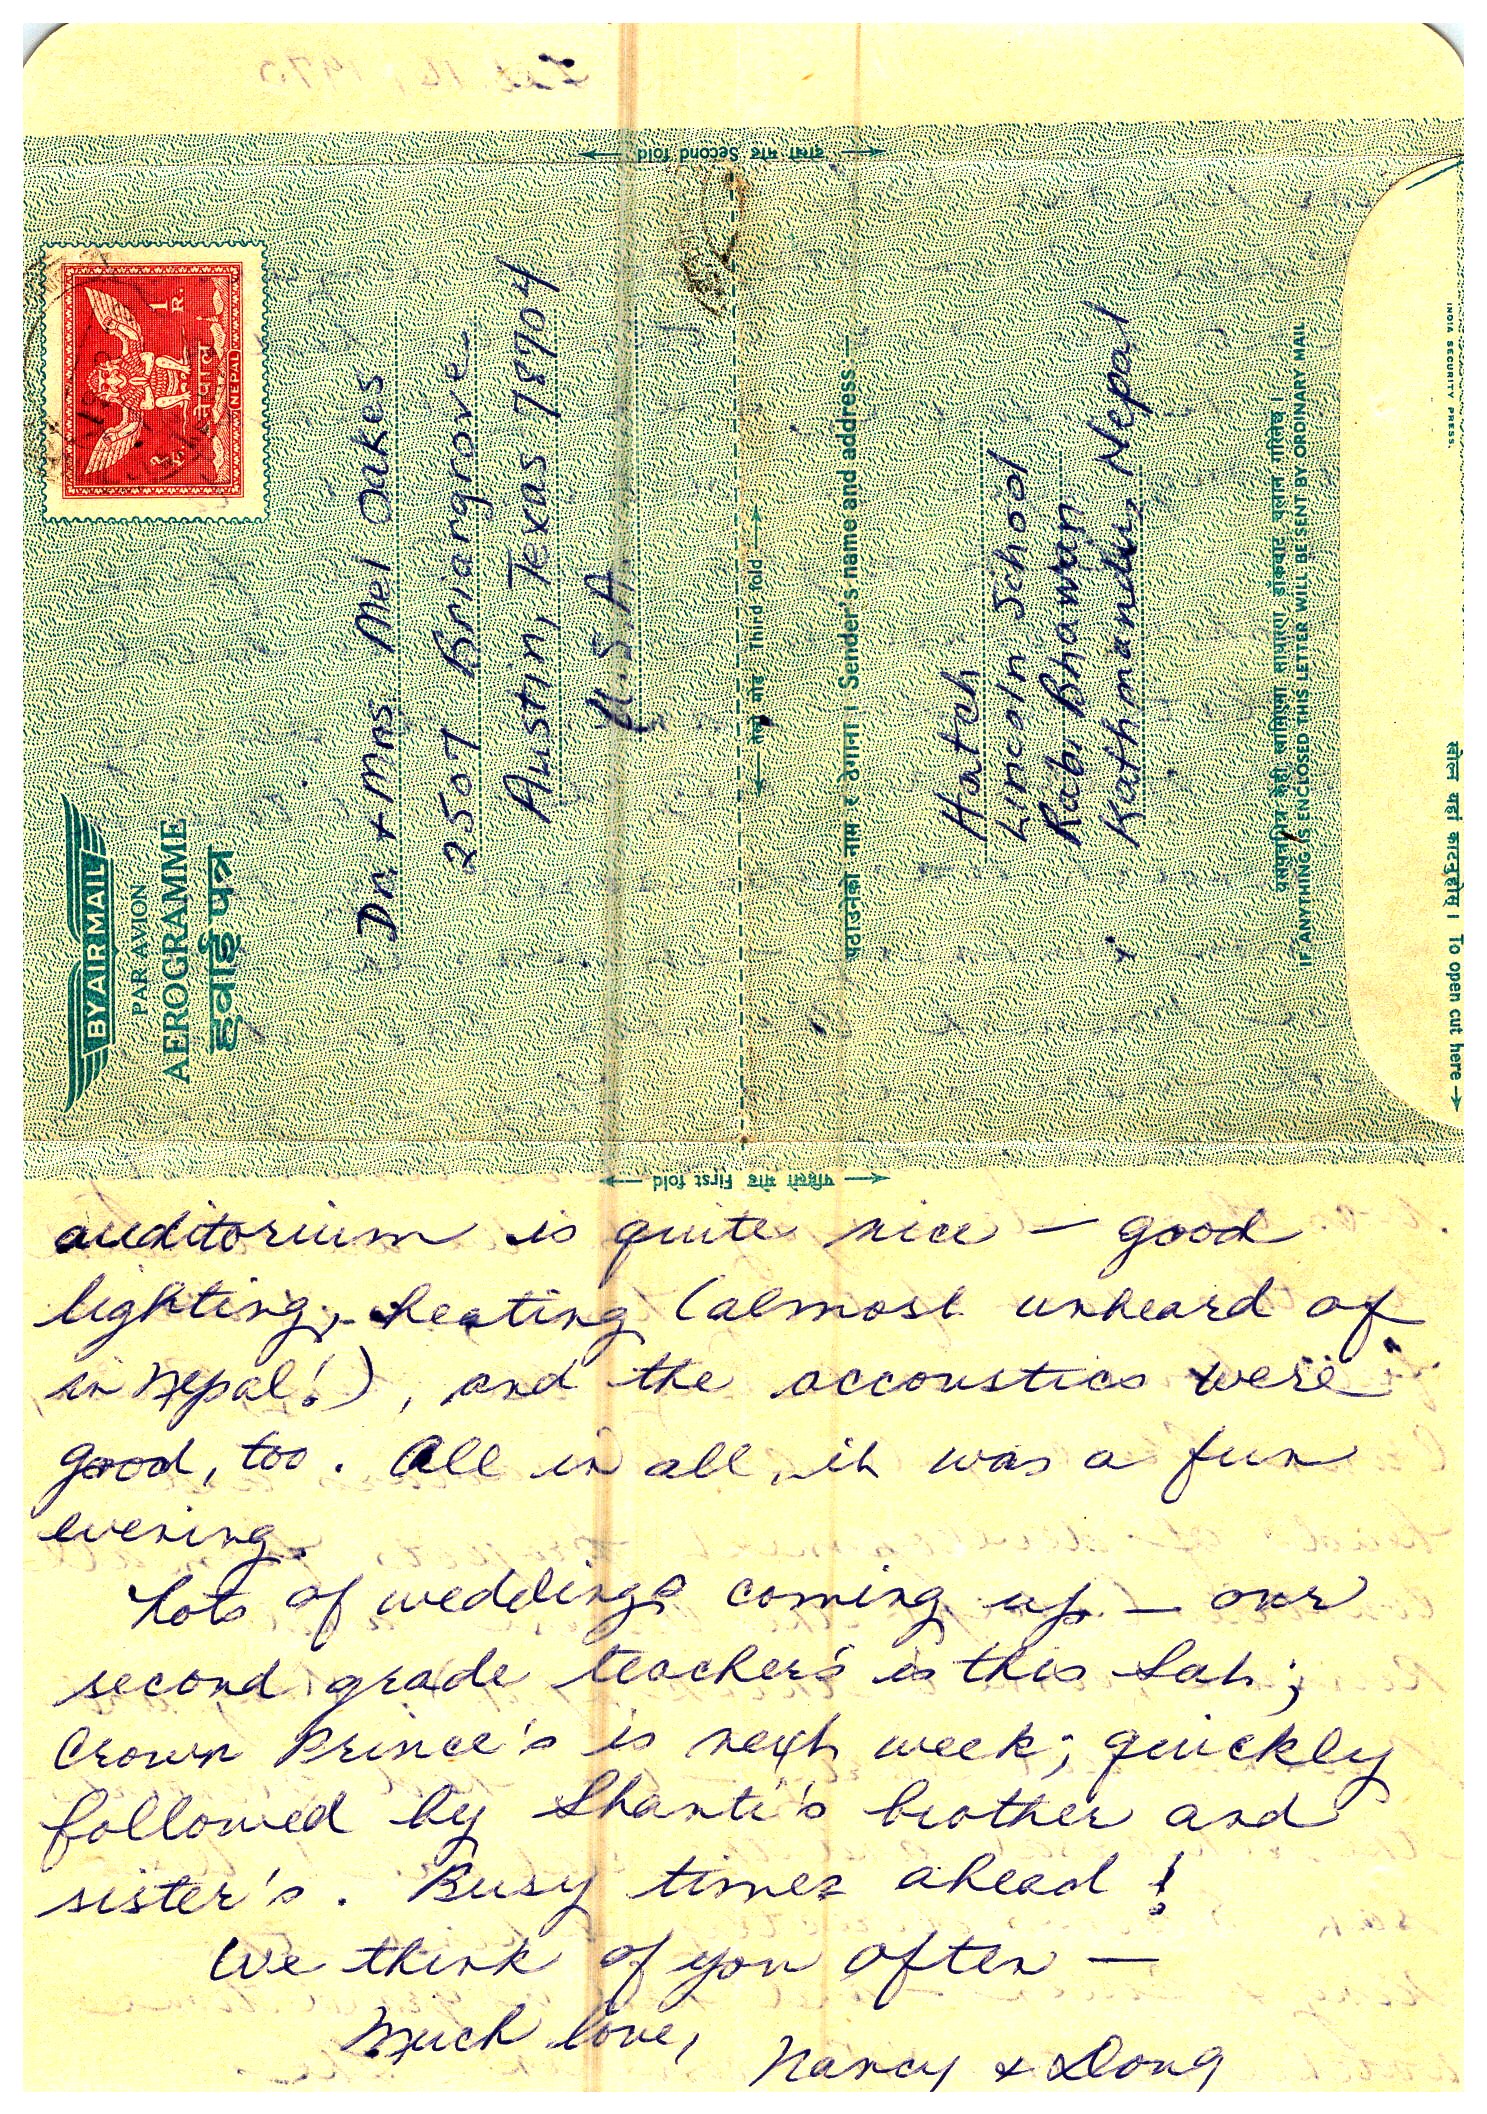 Second fold दोश्रो मोड
BY AIR MAIL
PAR AVION
AEROGRAMME
हवाई पत्र
1
R.
नेपाल
NEPAL
Dr. + Mrs. Mel Oakes
2507 Briargrove
Austin, Texas 78704
U.S.A.
तेस्रो मोड Third fold
पठाउनेको नाम र ठेगाना । Sender's name and address
Hatch
Lincoln School
Rabi Bhawan
Kathmandu, Nepal
यसपत्रभित्र केही खामिएमा साधारण डाँकबाट चलान गरिनेछ ।
IF ANYTHING IS ENCLOSED THIS LETTER WILL BE SENT BY ORDINARY MAIL
INDIA SECURITY PRESS.
खोल्न यहां काट्नुहोस् । To open cut here
पहिलो मोड First fold
auditorium is quite nice — good
lighting, heating (almost unheard of
in Nepal!), and the accoustics were
good, too. All in all, it was a fun
evening.
Lots of weddings coming up — our
second grade teacher's is this Sat.;
Crown Prince's is next week; quickly
followed by Shanti's brother and
sister's. Busy times ahead!
We think of you often —
Much love,
Nancy & Doug